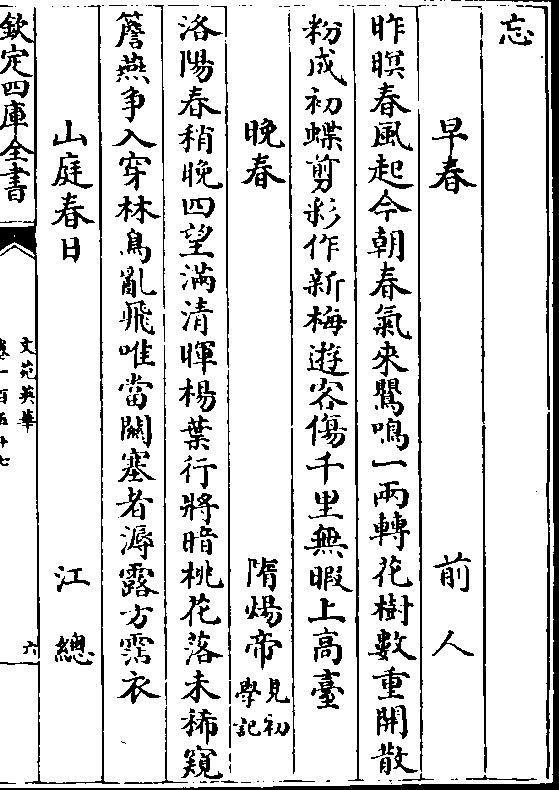 忘
早春 前人
昨暝春風起今朝春氣來鸎鳴一兩轉花樹數重開散
粉成初蝶剪彩作新梅遊客傷千里無暇上高臺
晚春 隋煬帝見初學記
洛陽春稍晚四望滿清暉楊葉行將暗桃花落未稀窺
簷燕爭入穿林鳥亂飛唯當關塞者溽露方霑衣
山庭春日 江總
欽定四庫全書
文苑英華
卷一百五十七
六